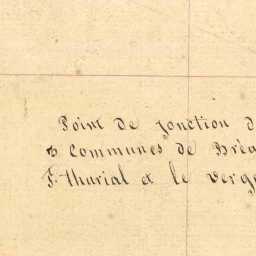 Point de jonction d
3 Communes de Bréa
St. thurial et le verge